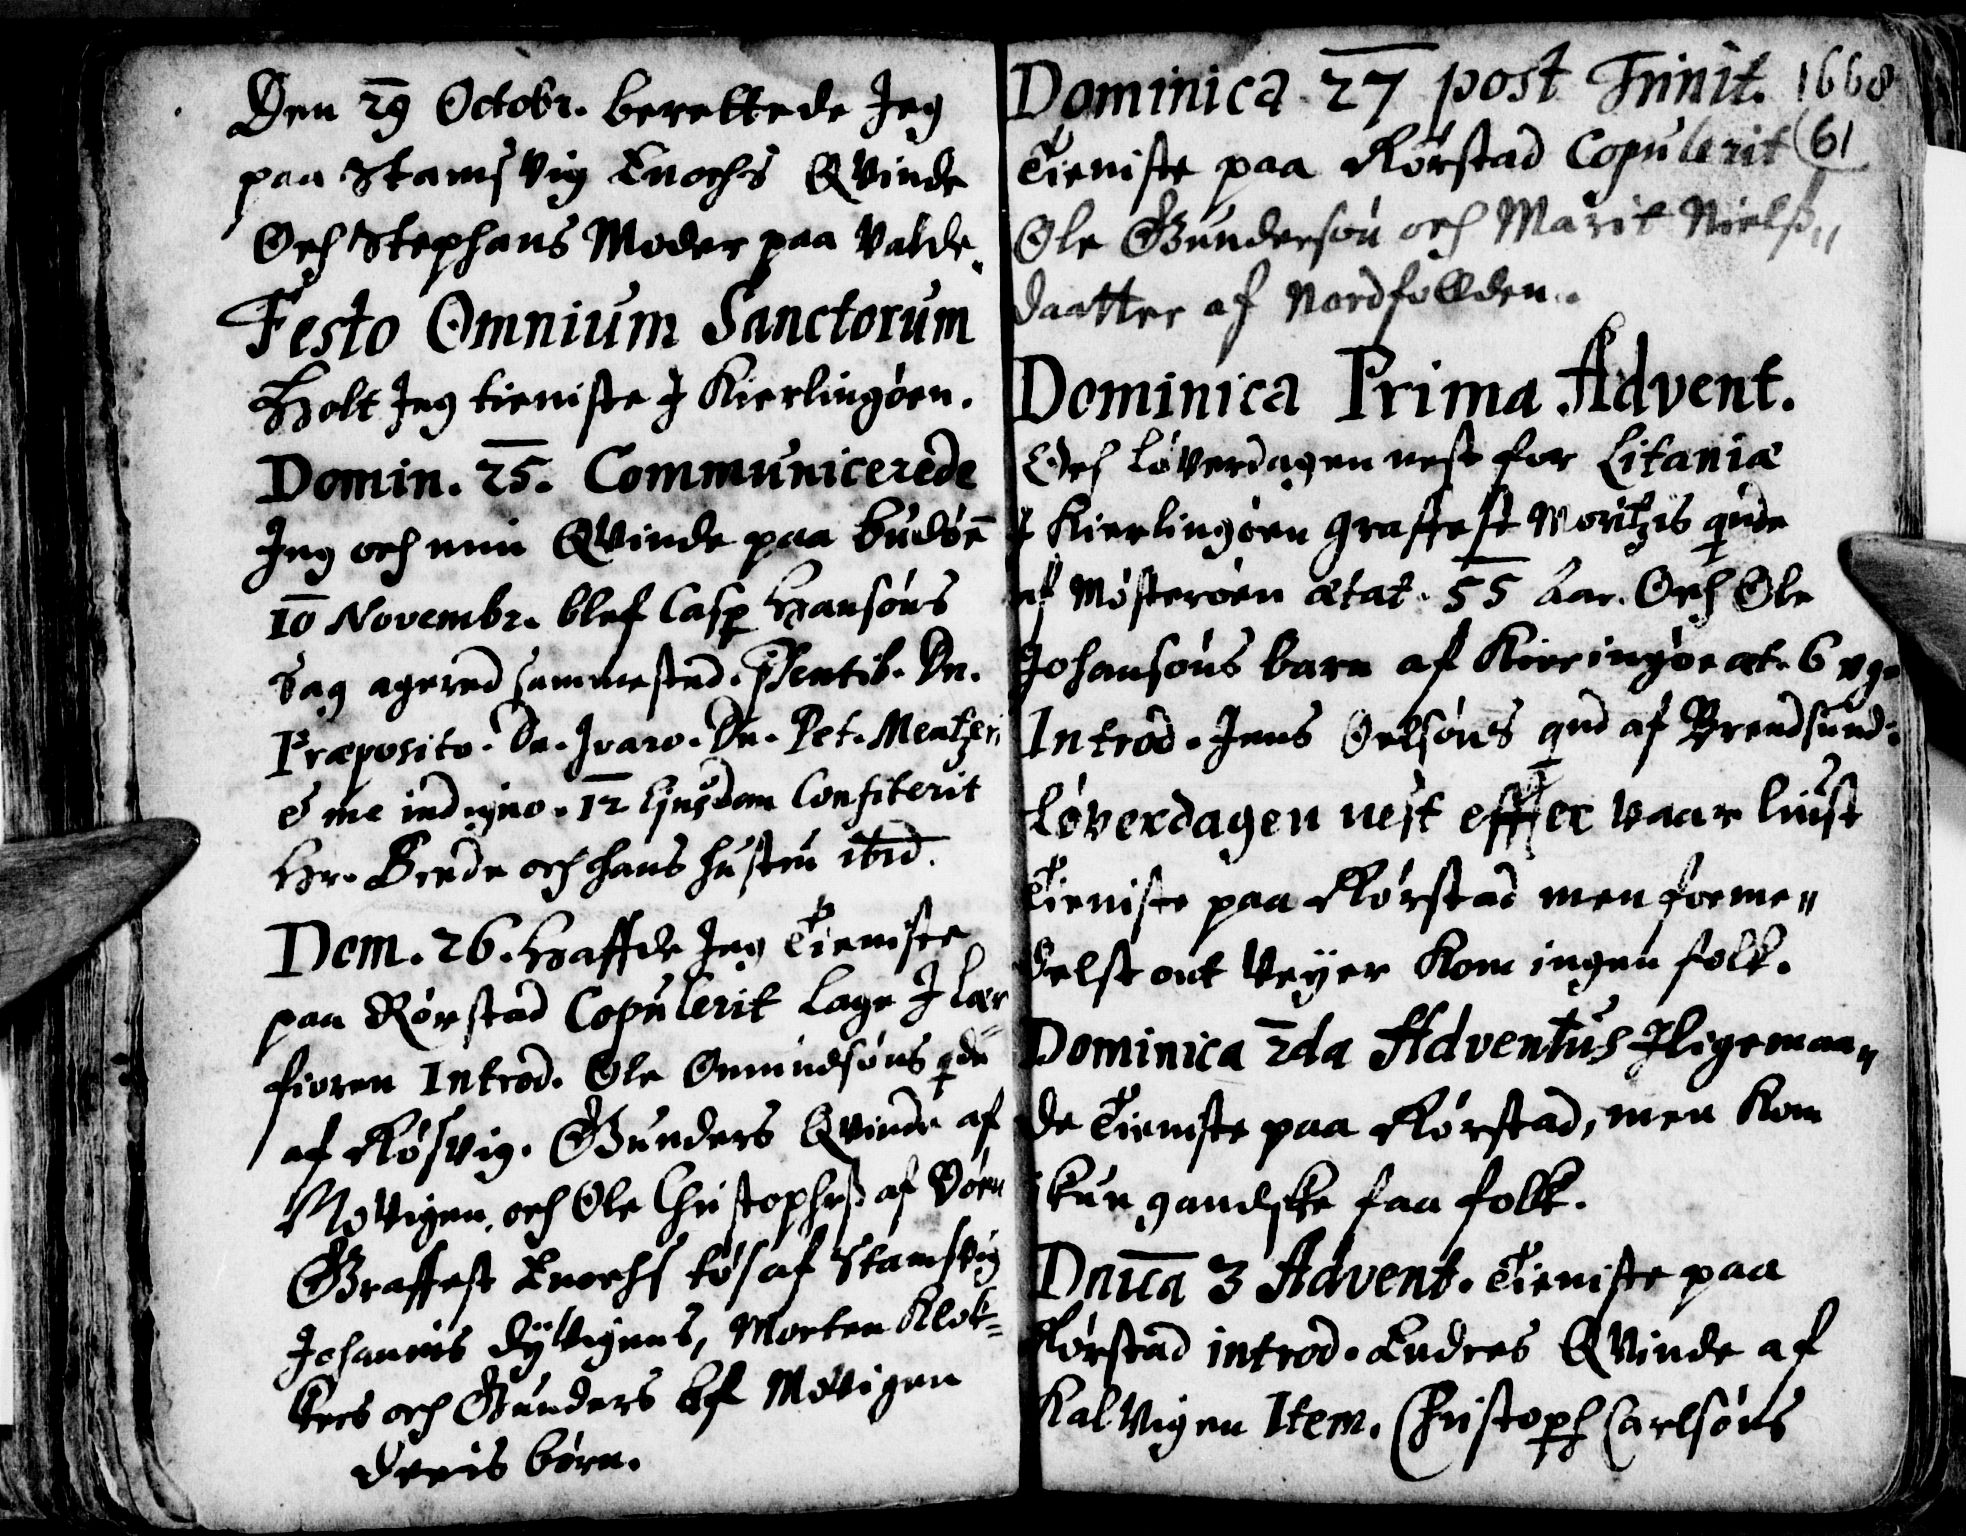 Den 29 Octobr. berettede Jeg
paa Stamsvig Enochs Qvinde
Och Stephans Moder paa Valde.
Festo Omnium Sanctorum
Holt Jeg tieniste J Kierlingøen.
Domin. 25. Communicerede
Jeg och min Qvinde paa Budøe
10 Novembr. blef Casp Hansøns
Sag agered sammested. Dn.
Præposito. Dn. Jvaro. Dn. Pet. Mentzeri
& me indigno. 12 Ejusdem Confiterit
Hr. Brede och hans hustru ibid.
Dom. 26. Haffde Jeg Tieniste
paa Rørstad Copulerit Lage J Leer
fioren Introd. Ole Omundsøns qde
af Røsvig. Gunders Qvinde af
Movigen. och Ole Christophrß af
Graffest Enochs tøs af Stamsvig
Johannis Dÿvigens, Morten Klok-
kers och Gunders af Movigen
deris børn.
Dominica 27 post Trinit. 1668
Tieniste paa Rørstad Copulerit 61
Ole Gundersøn och Marit Nielß„
daatter af Nordfolden.
Dominica Prima Advent.
Och Løverdagen nest for Litaniæ
J Kierlingøen graffest Moritzis qude
af Møsterøen ætat. 55 Aar. Och Ole
Johansøns barn af Kieringøe æt. 6 ug.
Introd. Jens Oelsøns qud af Brendsund.
Løverdagen nest effter vaar liust
Tieniste paa Rørstad men forme„
delst ont Veÿer Kom ingen folk.
Dominica 2da Adventus Jligemaa„
de Tieniste paa Rørstad, men Kom
ikun gandske faa folk.
Dnica 3 Advent. Tieniste paa
Rørstad introd. Endres Qvinde af
Kalvigen Item. Christoph Carlsøns